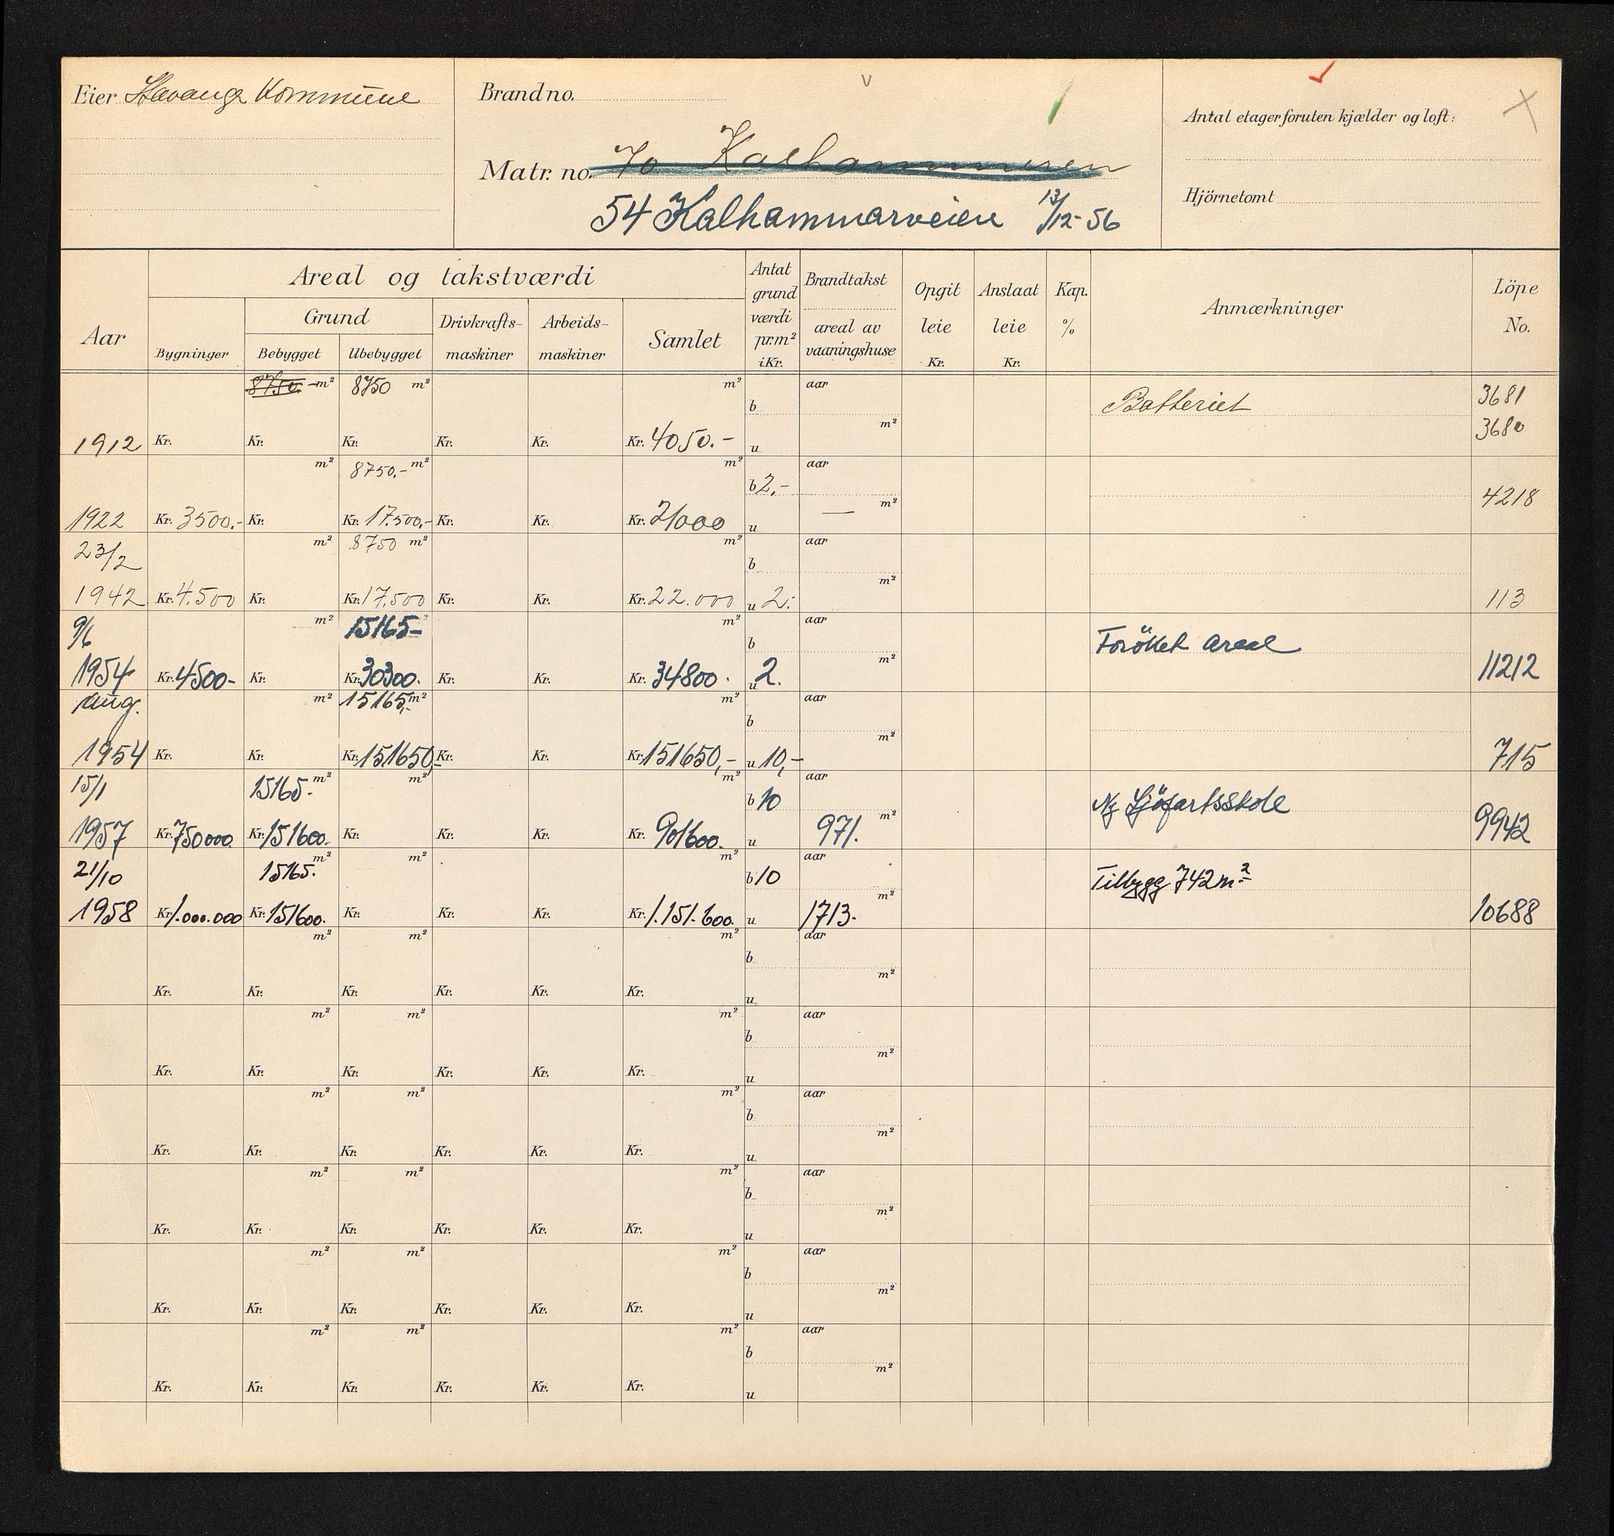 Eier Stavanger Kommune
Brand no.
Matr. no. 70 Kalhammeren
54 Kalhammarveien 13/12-56
Antal etager foruten kjælder og loft:
Hjörnetomt
Aar
Areal og takstværdi
Bygninger
Grund
Bebygget
Ubebygget
Drivkrafts-
maskiner
Arbeids-
maskiner
Samlet
Antat
grund
værdi
pr. m²
i Kr.
Brandtakst
areal av
vaaningshuse
Opgit
leie
Kr.
Anslaat
leie
Kr.
Kap.
%
Anmærkninger
Löpe
No.
8750.- m² 8750 m² m² aar
b Batteriet 3681
m² 3680
1912 Kr. Kr. Kr. Kr. Kr. Kr. 4050.- u
m² 8750.- m² m² aar
b 2,-
m² 4218
1922 Kr. 3500.- Kr. Kr. 17.500,- Kr. Kr. Kr. 21000 u —
23/2 m² 8750 m² m² aar
b
m²
1942 Kr. 4.500 Kr. Kr. 17.500 Kr. Kr. Kr. 22.000 u 2.- 113
9/6 m² 15165- m² aar
b Foröket areal
m²
1954 Kr. 4500- Kr. Kr. 30300. Kr. Kr. Kr. 34800. u 2. 11212
aug. m² 15165,- m² m² aar
b
m²
1954 Kr. Kr. Kr. 151650,- Kr. Kr. Kr. 151650,- u 10,- 715
15/1 15165.- m² m² m² aar
b 10 Ny Sjöfartsskole
m²
1957 Kr. 750000. Kr. 151600. Kr. Kr. Kr. Kr. 901600. u 971. 9942
21/10 15165. m² m² m² aar
b 10 Tilbygg 742 m²
m²
1958 Kr. 1.000.000 Kr. 151600. Kr. Kr. Kr. Kr. 1.151.600. u 1713. 10688
m² m² m² aar
b
m²
Kr. Kr. Kr. Kr. Kr. Kr. u
m² m² m² aar
b
m²
Kr. Kr. Kr. Kr. Kr. Kr. u
m² m² m² aar
b
m²
Kr. Kr. Kr. Kr. Kr. Kr. u
m² m² m² aar
b
m²
Kr. Kr. Kr. Kr. Kr. Kr. u
m² m² m² aar
b
m²
Kr. Kr. Kr. Kr. Kr. Kr. u
m² m² m² aar
b
m²
Kr. Kr. Kr. Kr. Kr. Kr. u